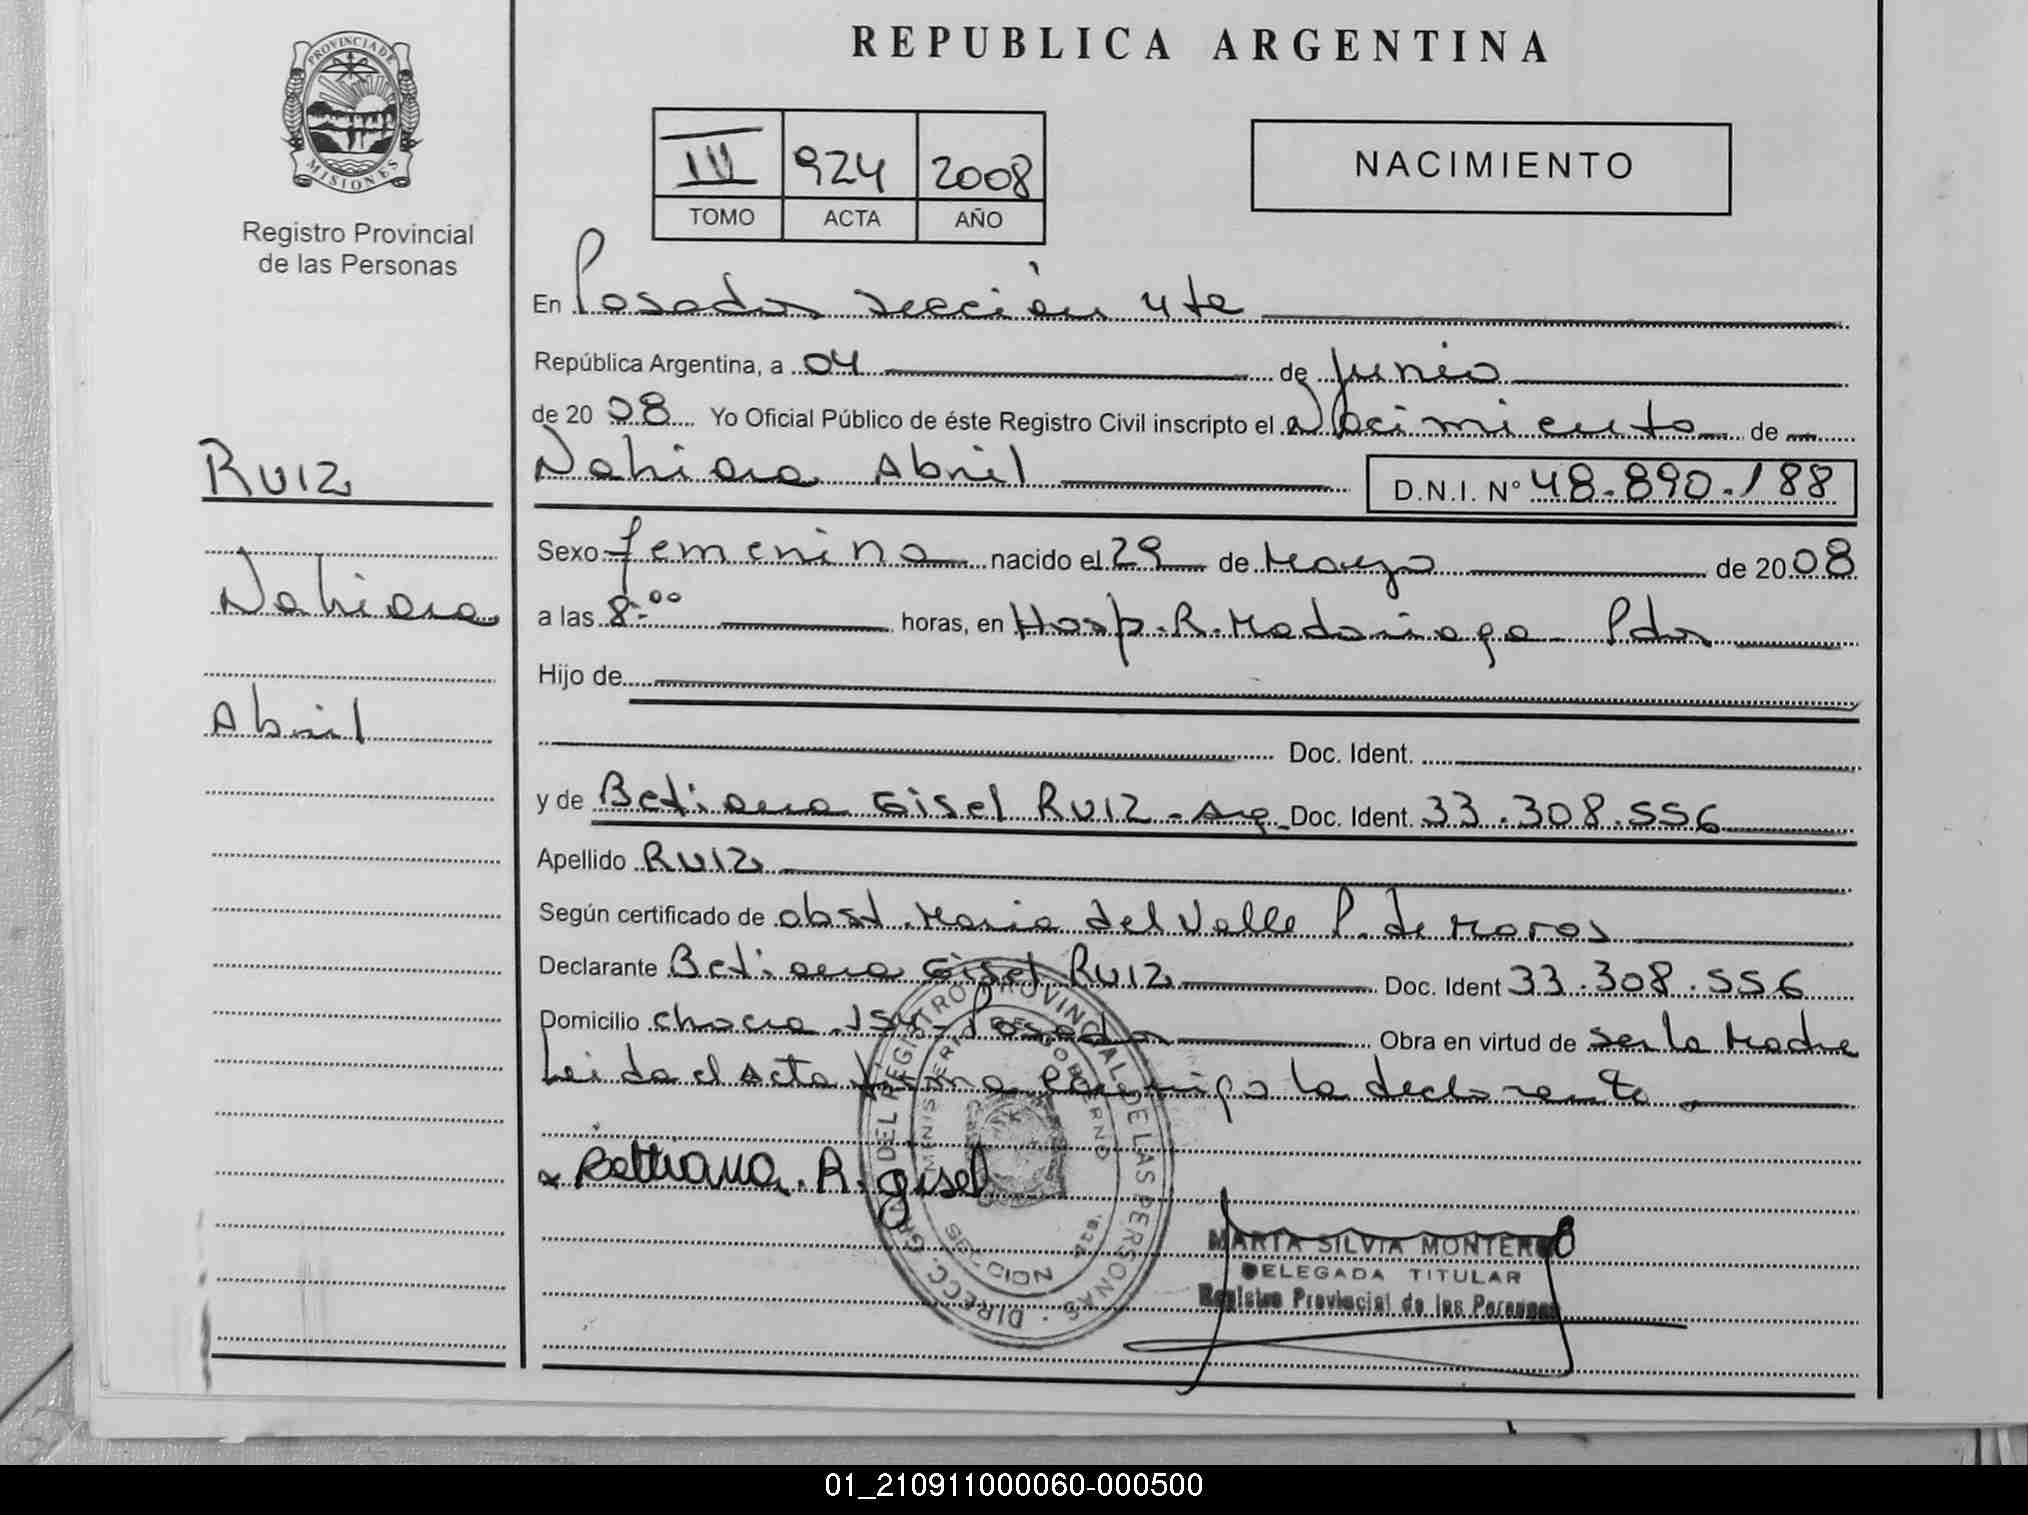 REPUBLICA ARGENTINA
PROVINCIA DE
MISIONES
Registro Provincial
de las Personas
III 924 2008
TOMO ACTA AÑO
NACIMIENTO
En Posadas sección 4ta
República Argentina, a 04 de Junio
de 20 08 Yo Oficial Público de éste Registro Civil inscripto el Nacimiento de
RUIZ
Nahiara Abril D.N.I. N° 48.890.188
Sexo femenino nacido el 29 de Mayo de 20 08
Nahiara
a las 8:00 horas, en Hosp. R. Madariaga Pdas
Hijo de
Abril
Doc. Ident.
y de Betiana Gisel RUIZ - Arg. Doc. Ident. 33.308.556
Apellido RUIZ
Según certificado de obst. Maria del Valle P. de
Declarante Betiana Gisel RUIZ Doc. Ident 33.308.556
Domicilio Posadas Obra en virtud de ser la Madre
Leida el Acta firma conmigo la declarante.
Bettiana. R. gisel
DIRECC. GRAL. DEL REGISTRO PROVINCIAL DE LAS PERSONAS
MINISTERIO DE GOBIERNO
MARTA SILVIA MONTERO
DELEGADA TITULAR
Registro Provincial de las Personas
01_210911000060-000500